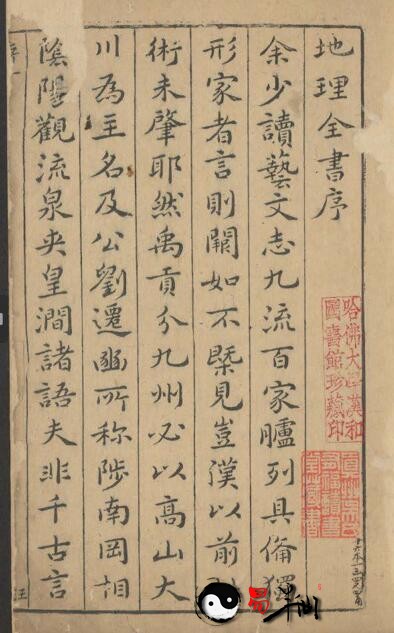 地理全書序
余少讀藝文志九流百家臚列具備獨
形家者言則闕如不槩見豈漢以前
術未肇耶然禹貢分九州必以高山大
川為主名及公劉遷豳所称陟南岡相
陰陽觀流泉夾皇澗諸語夫非千古言
哈佛大學漢和
圖書館珍藏印
序
汪
易